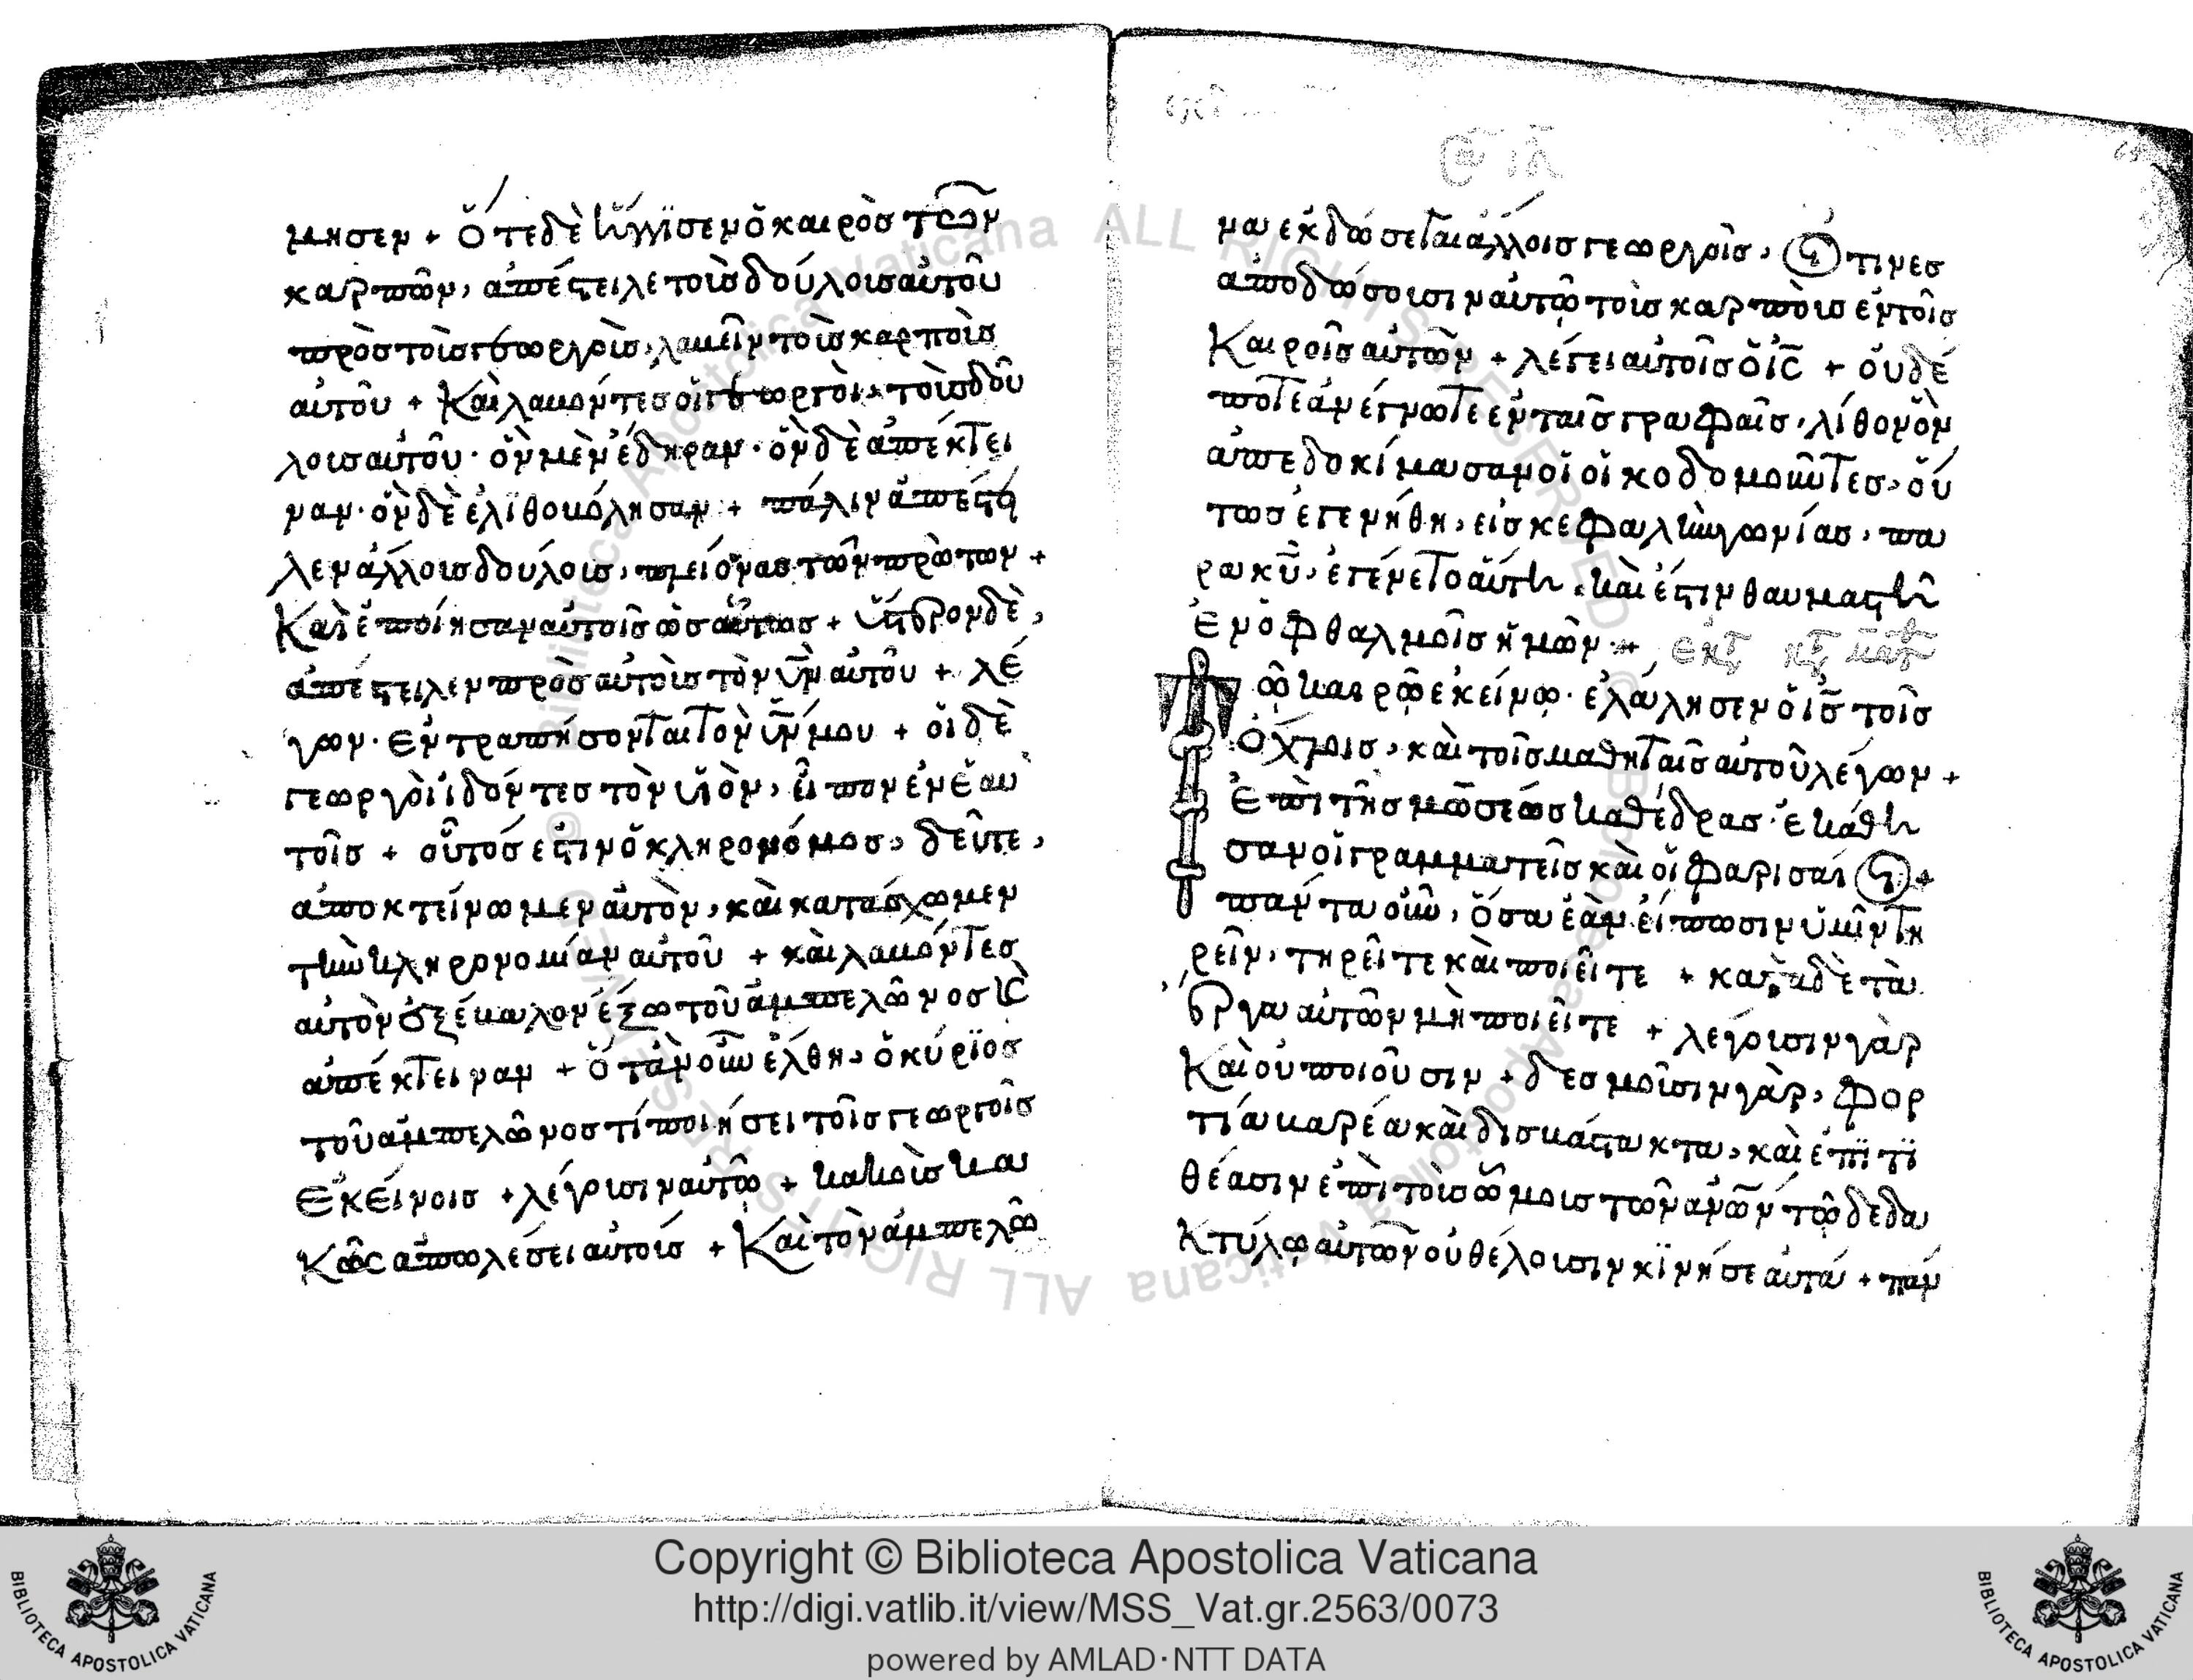 μησεν + ὅτε δὲ ἤγγϊσεν ὁ καιρὸσ τῶν
καρπῶν, ἀπέστειλε τοὶσ δούλοισ αὐτοῦ
πρὸσ τοὶσ γεωργοὶσ, λαβεῖν τοὶσ καρποὶσ
αὐτοῦ + Καὶ λαβόντεσ οἱ γεωργοὶ τοὶσ δοῦ
λοισ αὐτοῦ · ὃν μὲν ἔδηραν · ὃν δὲ ἀπέκτει
ναν · ὃν δὲ ἐλϊθοβόλησαν + πάλιν ἀπέστη
λεν ἄλλοισ δούλοισ, πλείονασ τῶν πρώτων +
Καὶ ἐποίησαν αὐτοῖσ ὡσαύτωσ + ὕστερον δὲ,
ἀπέστειλεν πρὸσ αὐτοὶσ τὸν υν αὐτοῦ + λέ
γων · ἐντραπήσονται τὸν υν μου + οἱ δὲ
γεωργοὶ ἰδόντεσ τὸν υἱὸν, εἶπον ἐν ἑαυ
τοῖσ + οὗτόσ ἐστιν ὁ κληρονόμοσ, δεῦτε,
ἀποκτείνωμεν αὐτὸν, καὶ κατάσχωμεν
τὴν κληρονομίαν αὐτοῦ + καὶ λαβόντεσ
αὐτὸν ἐξέβαλον ἔξω τοῦ ἀμπελῶνοσ κ
ἀπέκτειναν + ὅταν οὖν ἔλθη, ὁ κύρϊοσ
τοῦ ἀμπελῶνοσ τί ποιήσει τοῖσ γεωργοῖσ
ἐκείνοισ + λέγοισιν αὐτῶ + κακοὶσ κα
Κῶς ἀπωλέσει αὐτοίσ + Καὶ τὸν ἀμπελῶ
να ἐκδώσεται ἄλλοισ γεωργοῖσ, οἵτινεσ
ἀποδώσοισιν αὐτῶ τοὶσ καρποὶσ ἐν τοῖσ
Καιροῖσ αὐτῶν + λέγει αὐτοῖσ ὁ ις + οὐδέ
ποτε ἀνέγνωτε ἐν ταῖσ γραφαῖσ, λίθον ὃν
ἀπεδοκίμασαν οἱ οἰκοδομοῦντεσ, οὗ
τοσ ἐγενήθη, εἰσ κεφαλὴν γωνίασ, πα
ρα κυ, ἐγένετο αὕτη, καὶ ἔστιν θαυμαστὴ
ἐν ὀφθαλμοῖσ ἡμῶν +
ῶ καιρῶ ἐκείνω · ἐλάλησεν ὁ ις τοῖσ
ὄχλοισ, καὶ τοῖσ μαθηταῖσ αὐτοῦ λέγων +
Ἐπὶ τῆσ μωσέωσ καθέδρασ · ἐκάθη
σαν οἱ γραμματεῖσ καὶ οἱ φαρισαῖοι +
πάντα οὖν, ὅσα ἐὰν εἴπωσιν ὑμῖν τη
ρεῖν, τηρεῖτε καὶ ποιεῖτε + κατὰ δὲ τὰ
ἔργα αὐτῶν μὴ ποιεῖτε + λέγοισιν γὰρ
Καὶ οὐ ποιοῦσιν + δεσμοῖσιν γὰρ, φορ
τία βαρέα καὶ δισβάστακτα, καὶ ἐπϊτϊ
θέασιν ἐπὶ τοὶσ ὤμοισ τῶν ανων τῶ δὲ δα
Κτύλω αὐτῶν οὐ θέλοισιν κϊνήσε αὐτά + πάν
Copyright © Biblioteca Apostolica Vaticana
http://digi.vatlib.it/view/MSS_Vat.gr.2563/0073
powered by AMLAD·NTT DATA
BIBLIOTECA APOSTOLICA VATICANA
BIBLIOTECA APOSTOLICA VATICANA